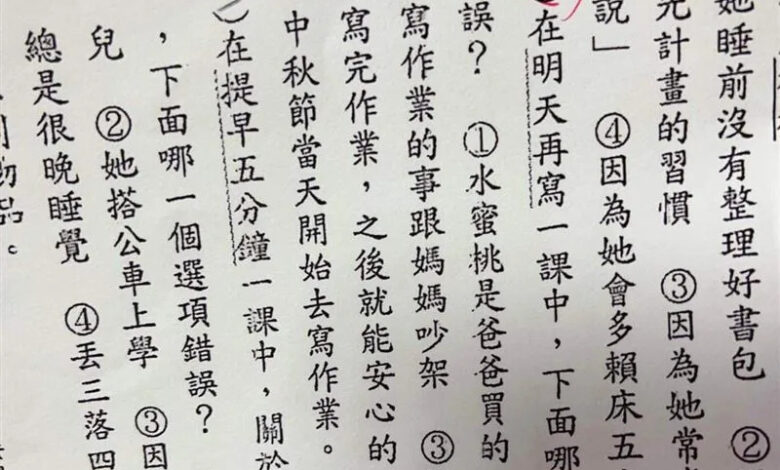 她睡前沒有整理好書包 ②
計畫的習慣 ③因為她常
說」 ④因為她會多賴床五
)在明天再寫一課中，下面哪
誤？ ①水蜜桃是爸爸買的
寫作業的事跟媽媽吵架 ③
寫完作業，之後就能安心的
中秋節當天開始去寫作業。
)在提早五分鐘一課中，關於
，下面哪一個選項錯誤？
兒 ②她搭公車上學 ③因
總是很晚睡覺 ④丟三落四
物品。